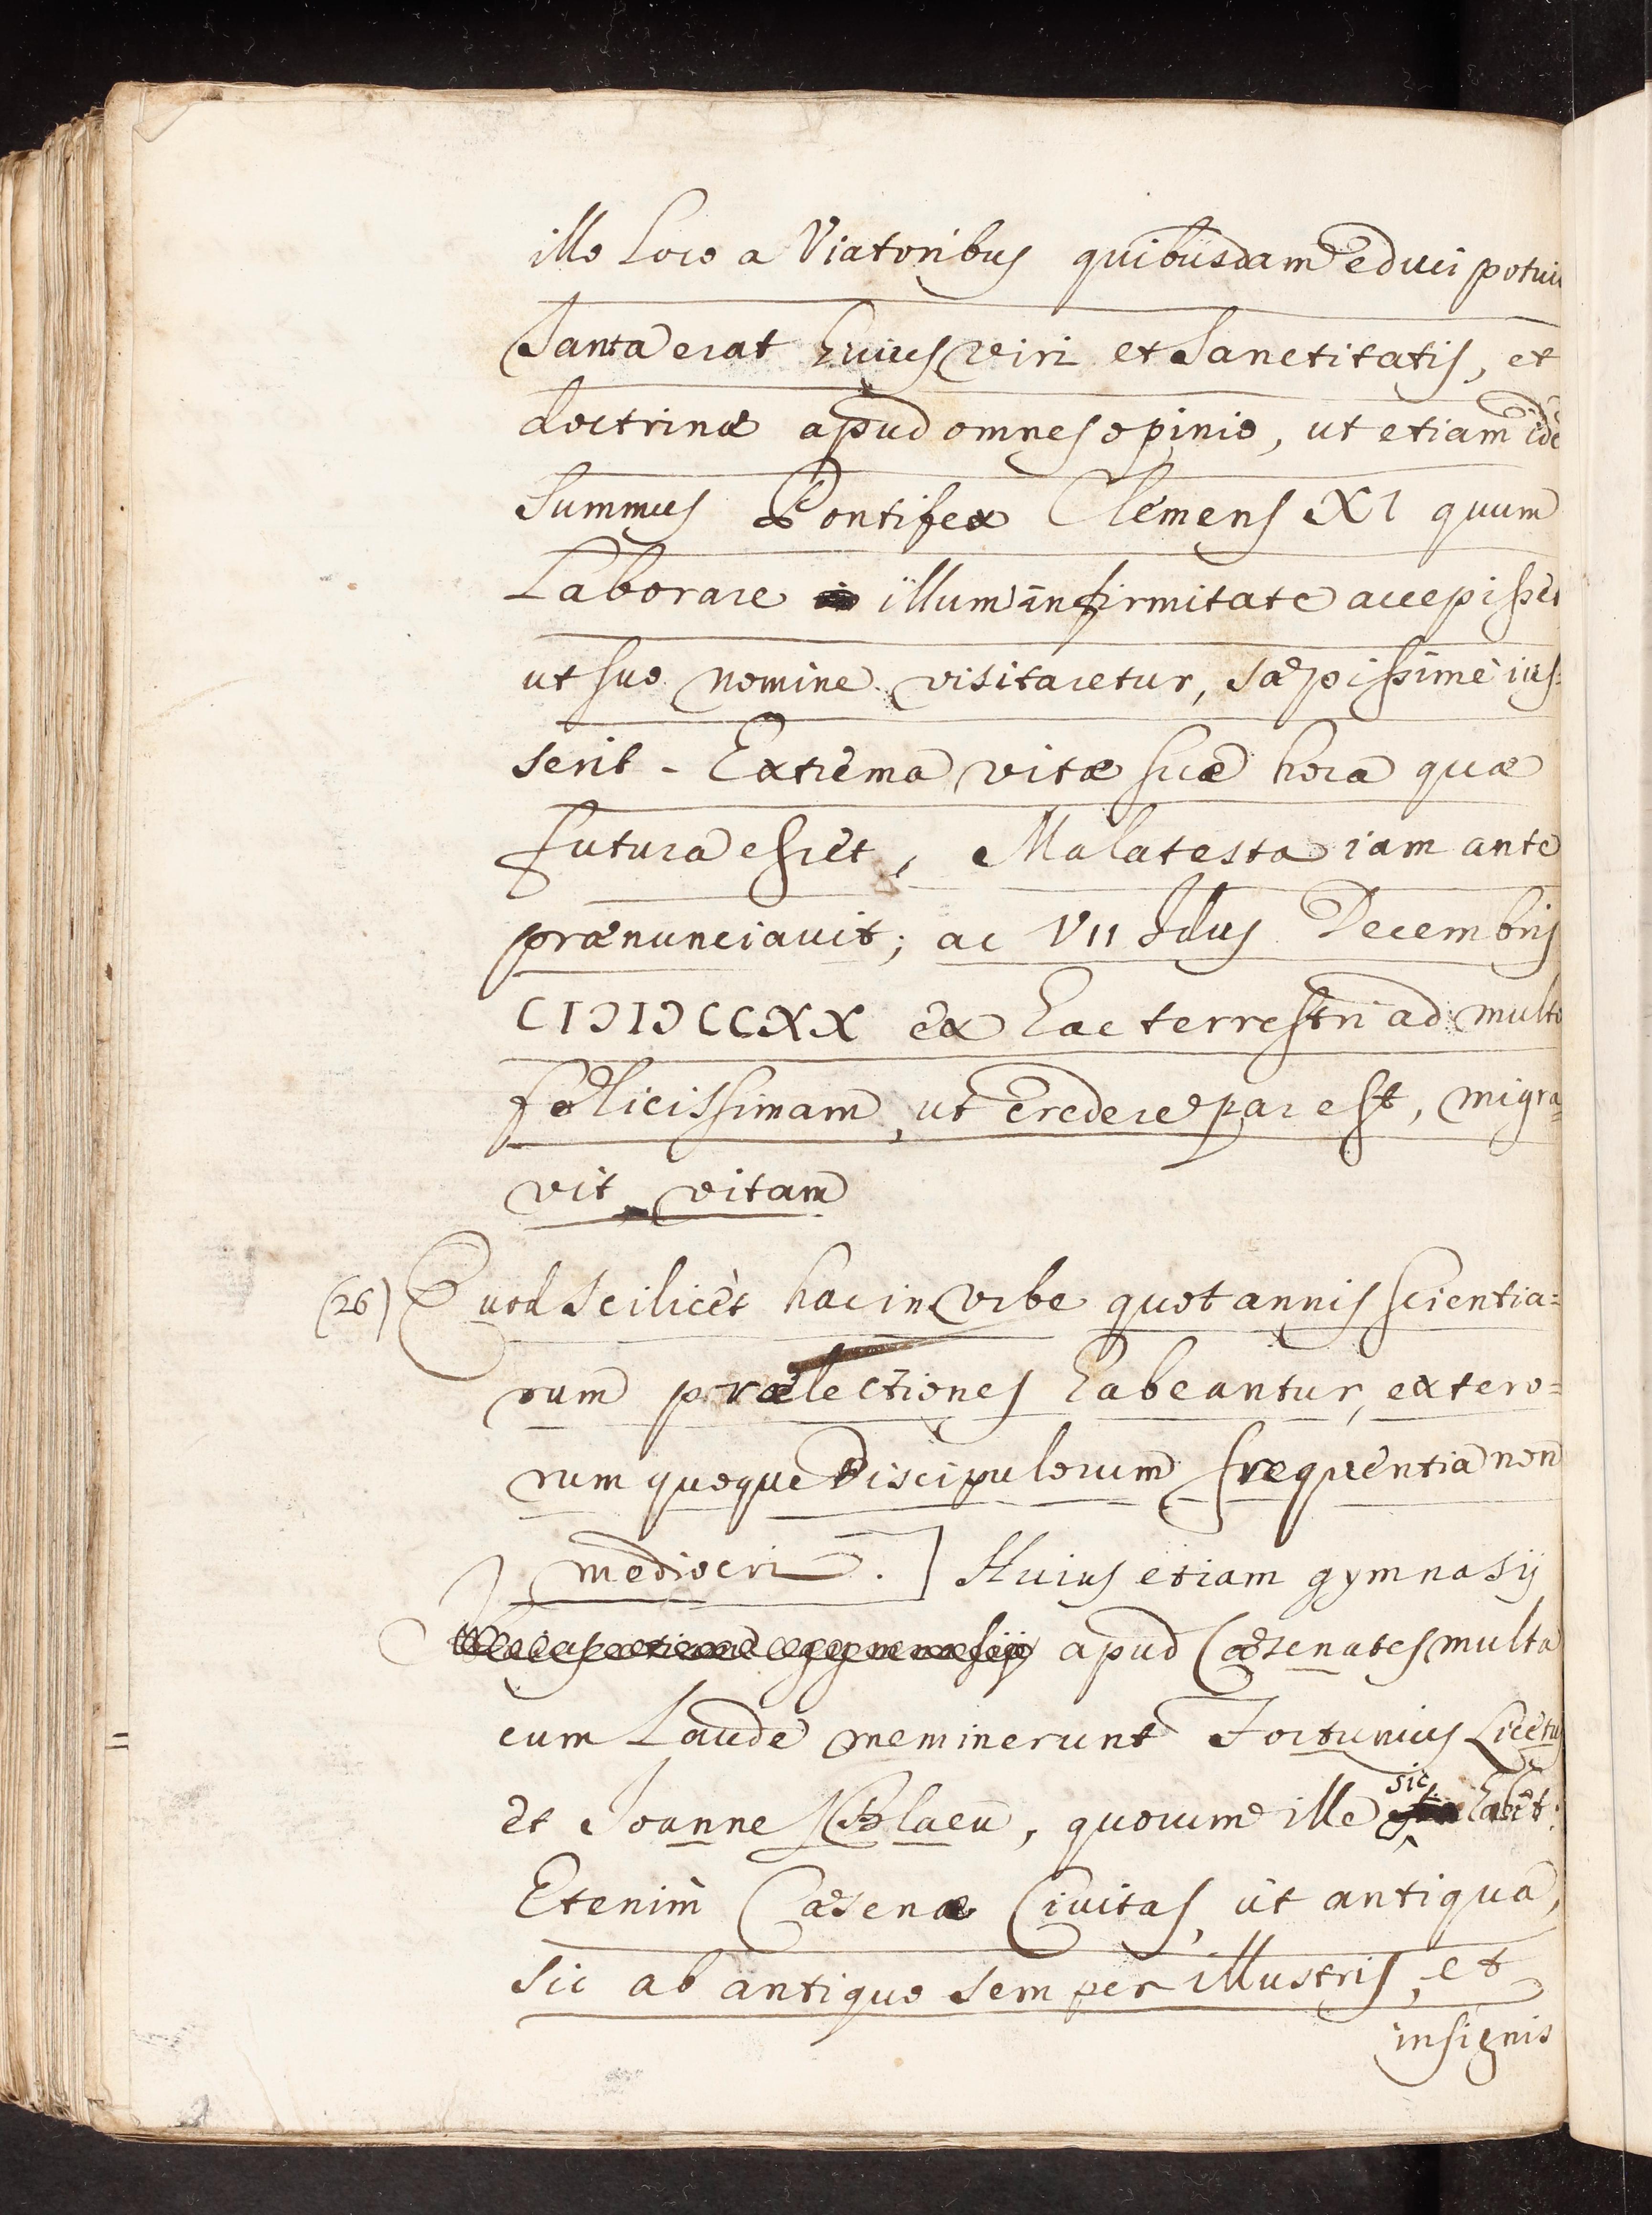 illo loco a Viatoribus quibusdam educi potui
Tanta erat huius viri et Sanctitatis, et
doctrinæ apud omnes opinio, ut etiam ide
Summus Pontifex Clemens XI quum
Laborare illum infirmitate accepisset
ut suo nomine visitaretur, sæpissime ius=
serit - Extrema vitæ suæ hora quæ
futura esset, Malatesta iam ante
prænunciavit; ac VII Idus Decembris
CIƆIƆCCXX ex hac terrestri ad multo
fælicissimam, ut credere par est, migra=
vit vitam
(26) Quod Scilicèt hac in Vrbe quot annis scientia=
rum prælectiones habeantur, extero=
rum quoque Discipulorum frequentia non
mediocri. ] Huius etiam gymnasij
Huius etiam gymnasij apud Cæsenates multa
cum Laude meminerunt Fortunius Licetus
et Joannes Blaeu, quorum ille sic habet:
Etenim Cæsenæ Civitas, ut antiqua,
sic ab antiquo semper illustris, et
insignis